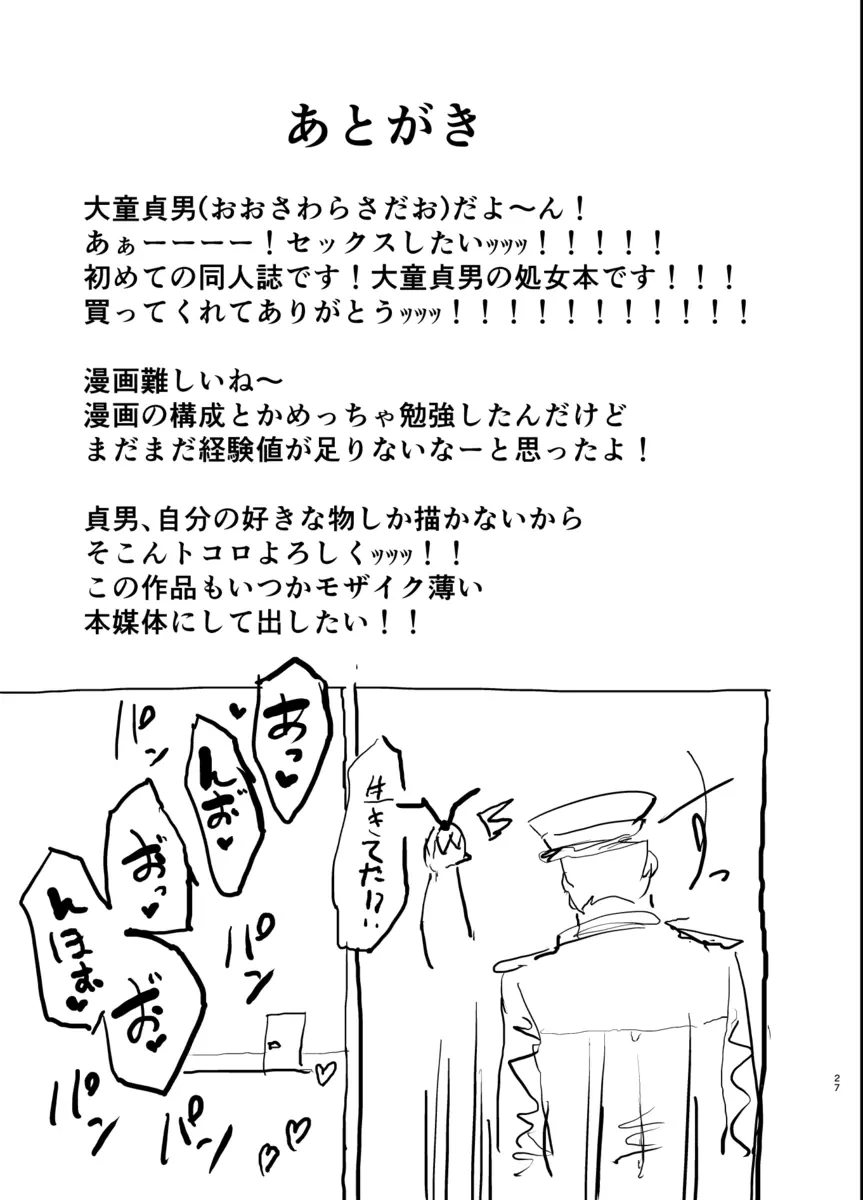 あとがき
大童貞男(おおさわらさだお)だよ～ん！
あぁーーーー！セックスしたいｯｯｯ！！！！！
初めての同人誌です！大童貞男の処女本です！！！
買ってくれてありがとうｯｯｯ！！！！！！！！！！！
漫画難しいね～
漫画の構成とかめっちゃ勉強したんだけど
まだまだ経験値が足りないなーと思ったよ！
貞男、自分の好きな物しか描かないから
そこんトコロよろしくｯｯｯ！！
この作品もいつかモザイク薄い
本媒体にして出したい！！
生きてた!?
あっ♥
んお♥
おっ♥
お♥
んほお♥
パン
パン
パン
パン
27